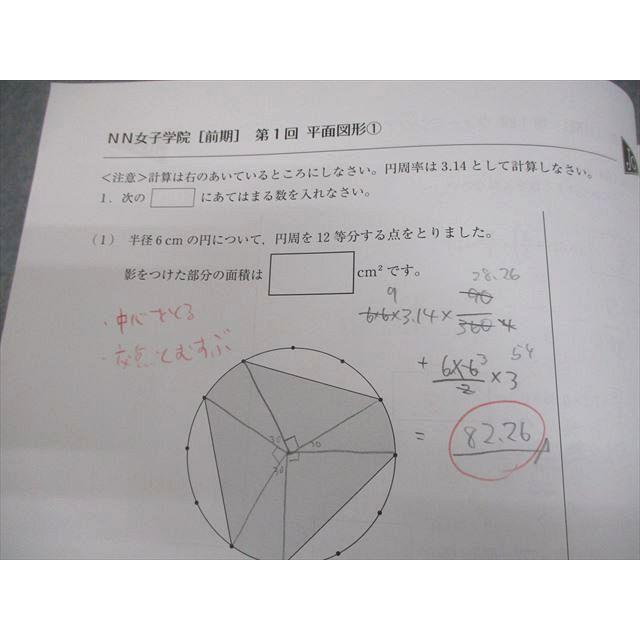 NN女子学院［前期］ 第1回 平面図形①
＜注意＞計算は右のあいているところにしなさい。円周率は3.14として計算しなさい。
1．次の□にあてはまる数を入れなさい。
（1） 半径6cmの円について，円周を12等分する点をとりました。
影をつけた部分の面積は□cm²です。
28.26
9 90
6×6×3.14×90/360 4
・中心をとる
・交点とむすぶ
+ 6×6/2 3 ×3 54
= 82.26
30 30
30